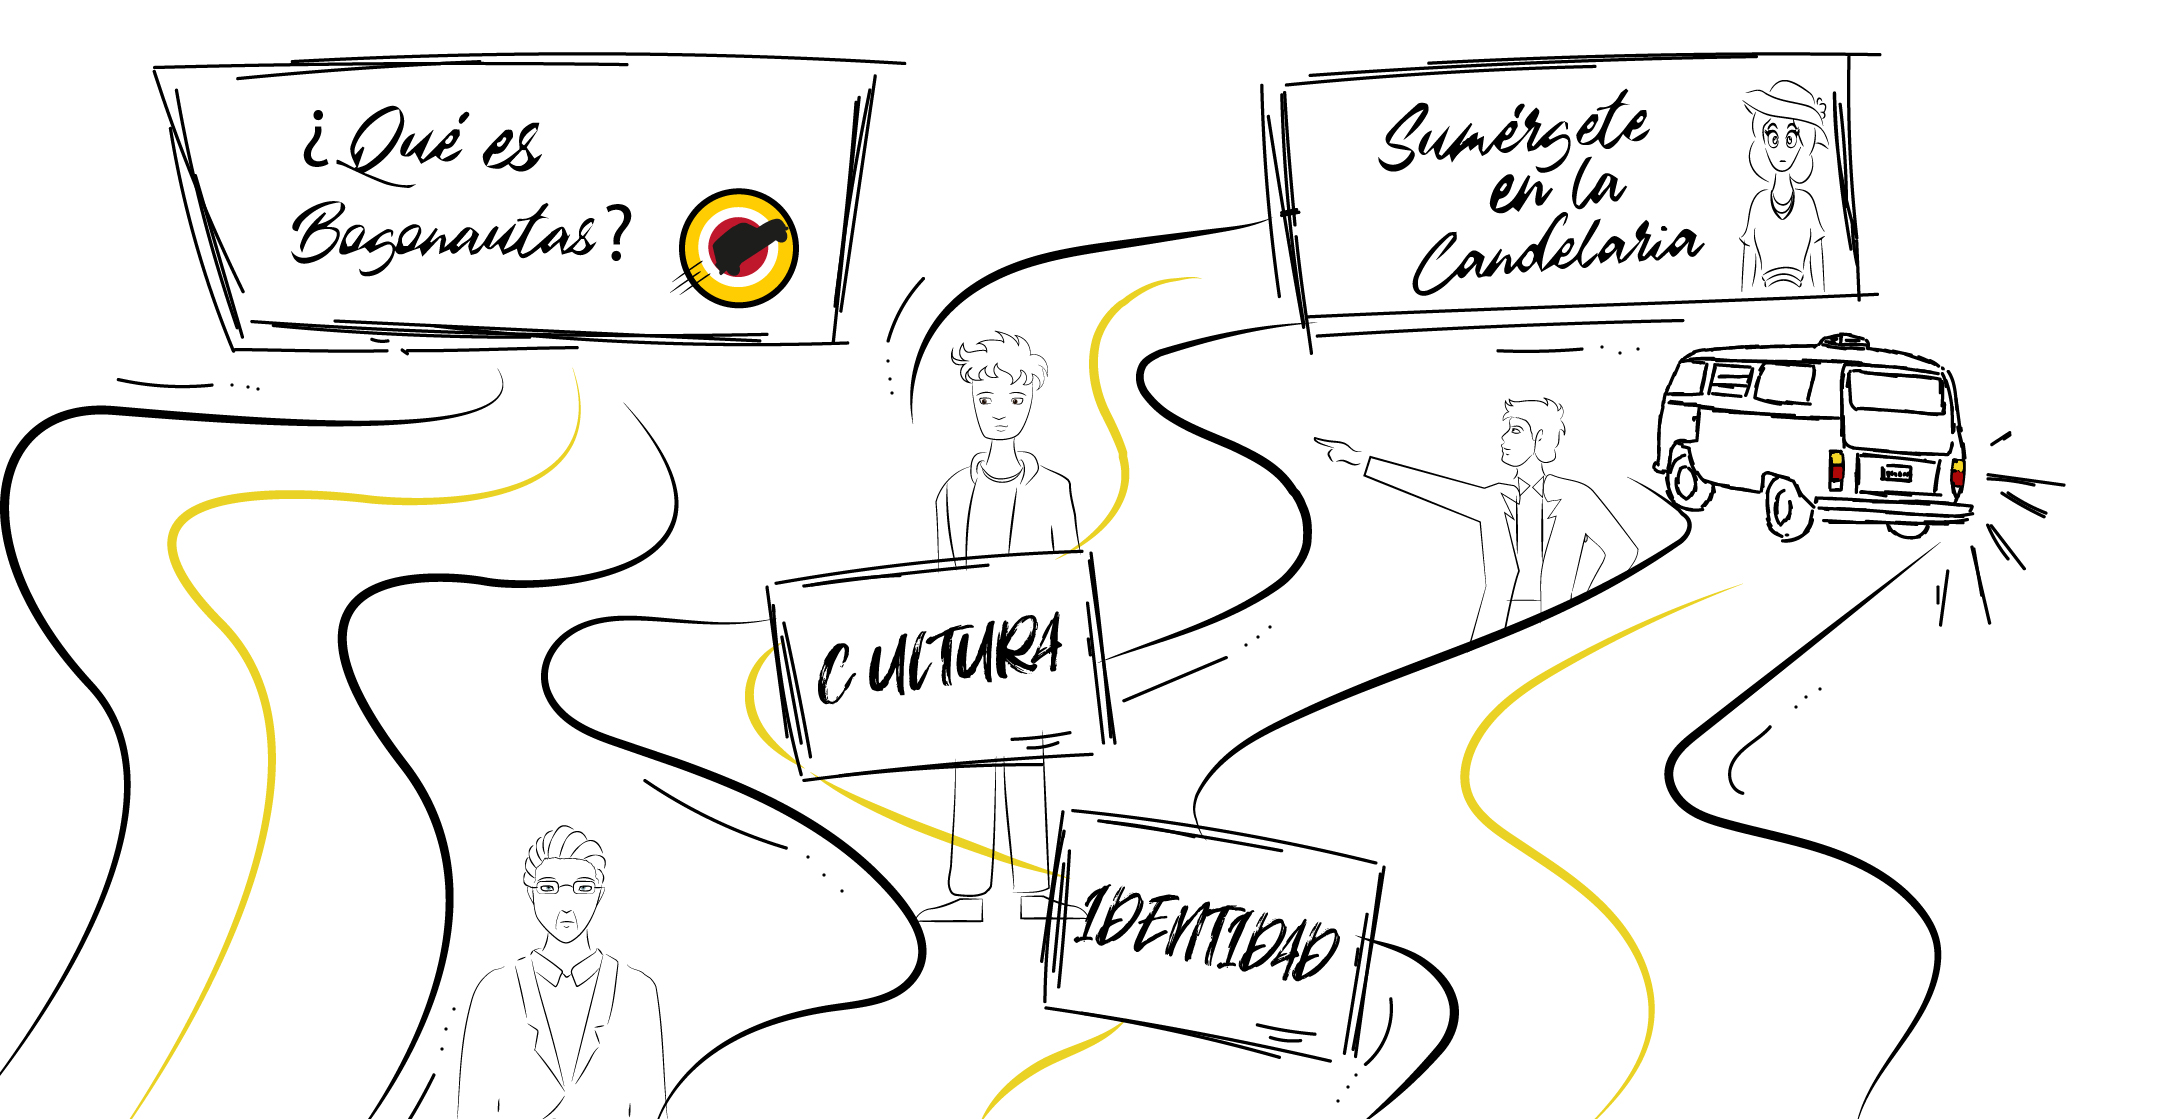 ¿Qué es
Bogonautas?
Sumérgete
en la
Candelaria
CULTURA
IDENTIDAD